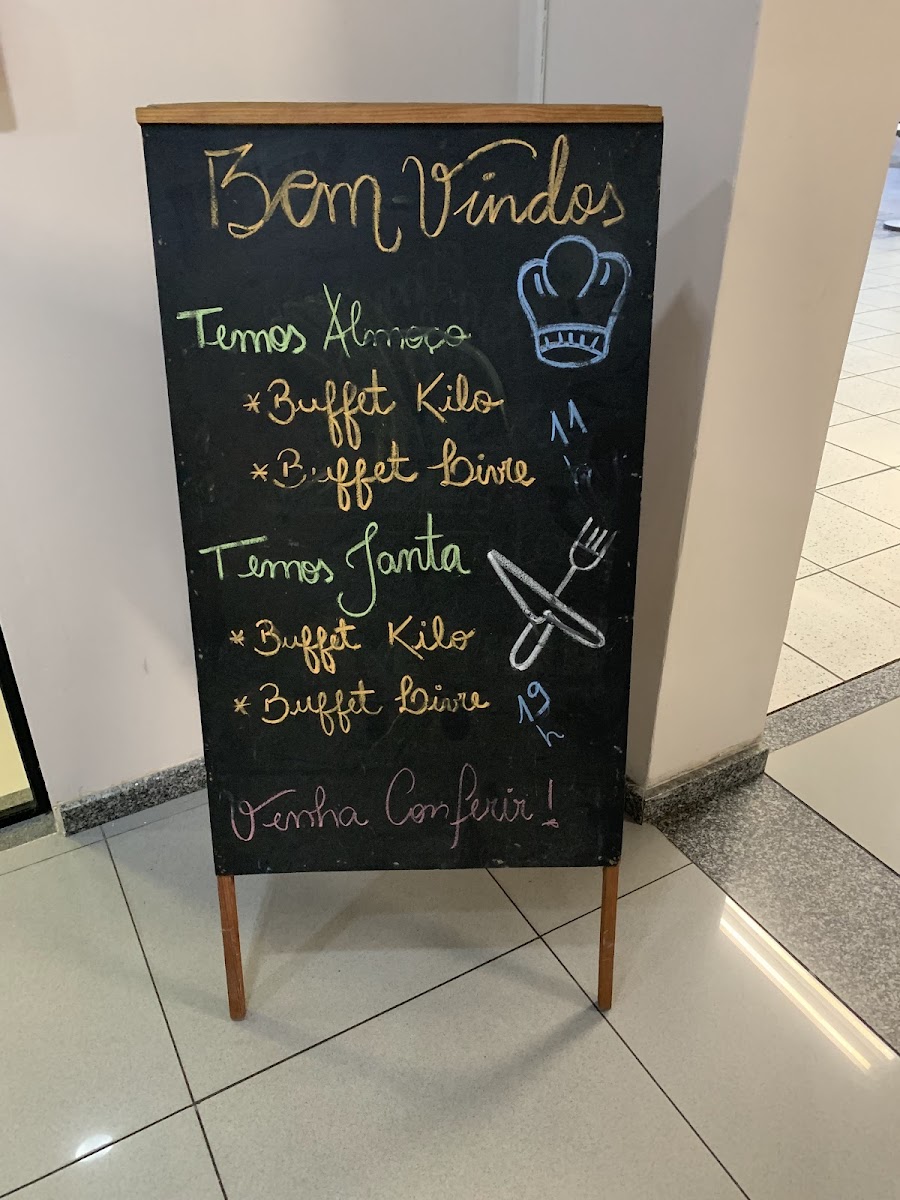 Bem Vindos
Temos Almoço
*Buffet Kilo
11
h
*Buffet Livre
Temos Janta
*Buffet Kilo
*Buffet Livre
19
h
Venha Conferir!